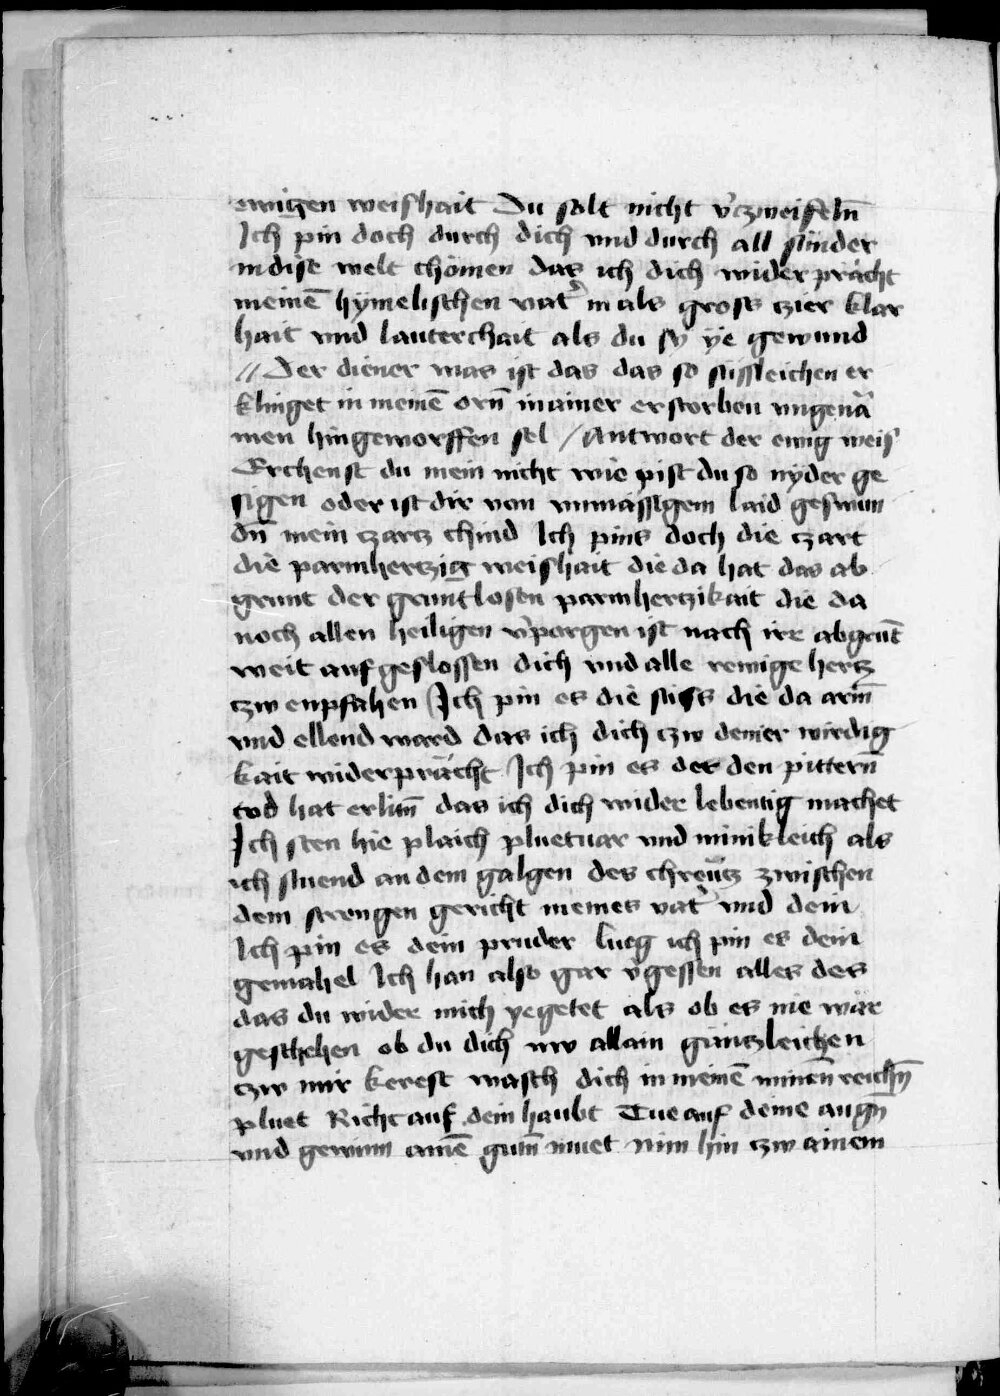 ewigen weishait Du solt nicht v̾czweifeln̄
Ich pin doch durch dich vnd durch all sünder
in dise welt chömen das ich dich wider prächt
meinē hÿmelischen vat̾ in als gross czier klar
hait vnd lauterchait als du sy ÿe gewund
// Der diener was ist das das so süssleichen er
klinget in meinē orn̄ in ainer erstorben vngenā
men hin geworffen sel / Antwort der ewig weis
Erchenst du mein nicht wie pist du so nÿder ge
sigen oder ist dir von vnmässigem laid geswun
dn̄ mein czarcz chind Ich pins doch die czart
die parmherczig weishait die da hat das ab
grunt der gruntlosen parmherczikait die da
noch allen heiligen v̾porgen ist nach irr abgrūt
weit auf geslossen dich vnd alle rewige hercz
czw enpfahen Ich pin es die süss die da arm̄
vnd ellend ward das ich dich czw deiner wirdig
kait wider prächt Ich pin es der den pittern̄
tod hat erlitn̄ das ich dich wider lebentig machet
Ich sten hie plaich pluetuar vnd minikleich als
ich stuend an dem galgen des chreücz zwischen
dem strengen gericht meines vat̾ vnd dein
Ich pin es dein pruder lueg ich pin es dein
gemahel Ich han also gar v̾gessen alles des
das du wider mich yegetet als ob es nie wär
geschehen ob du dich nw allain gänczleichen
czw mir kerest wasch dich in meinē minnreichn̄
pluet Richt auf dein haubt Tue auf deine augn̄
vnd gewinn ainē gutn̄ muet Nim hin czw ainem